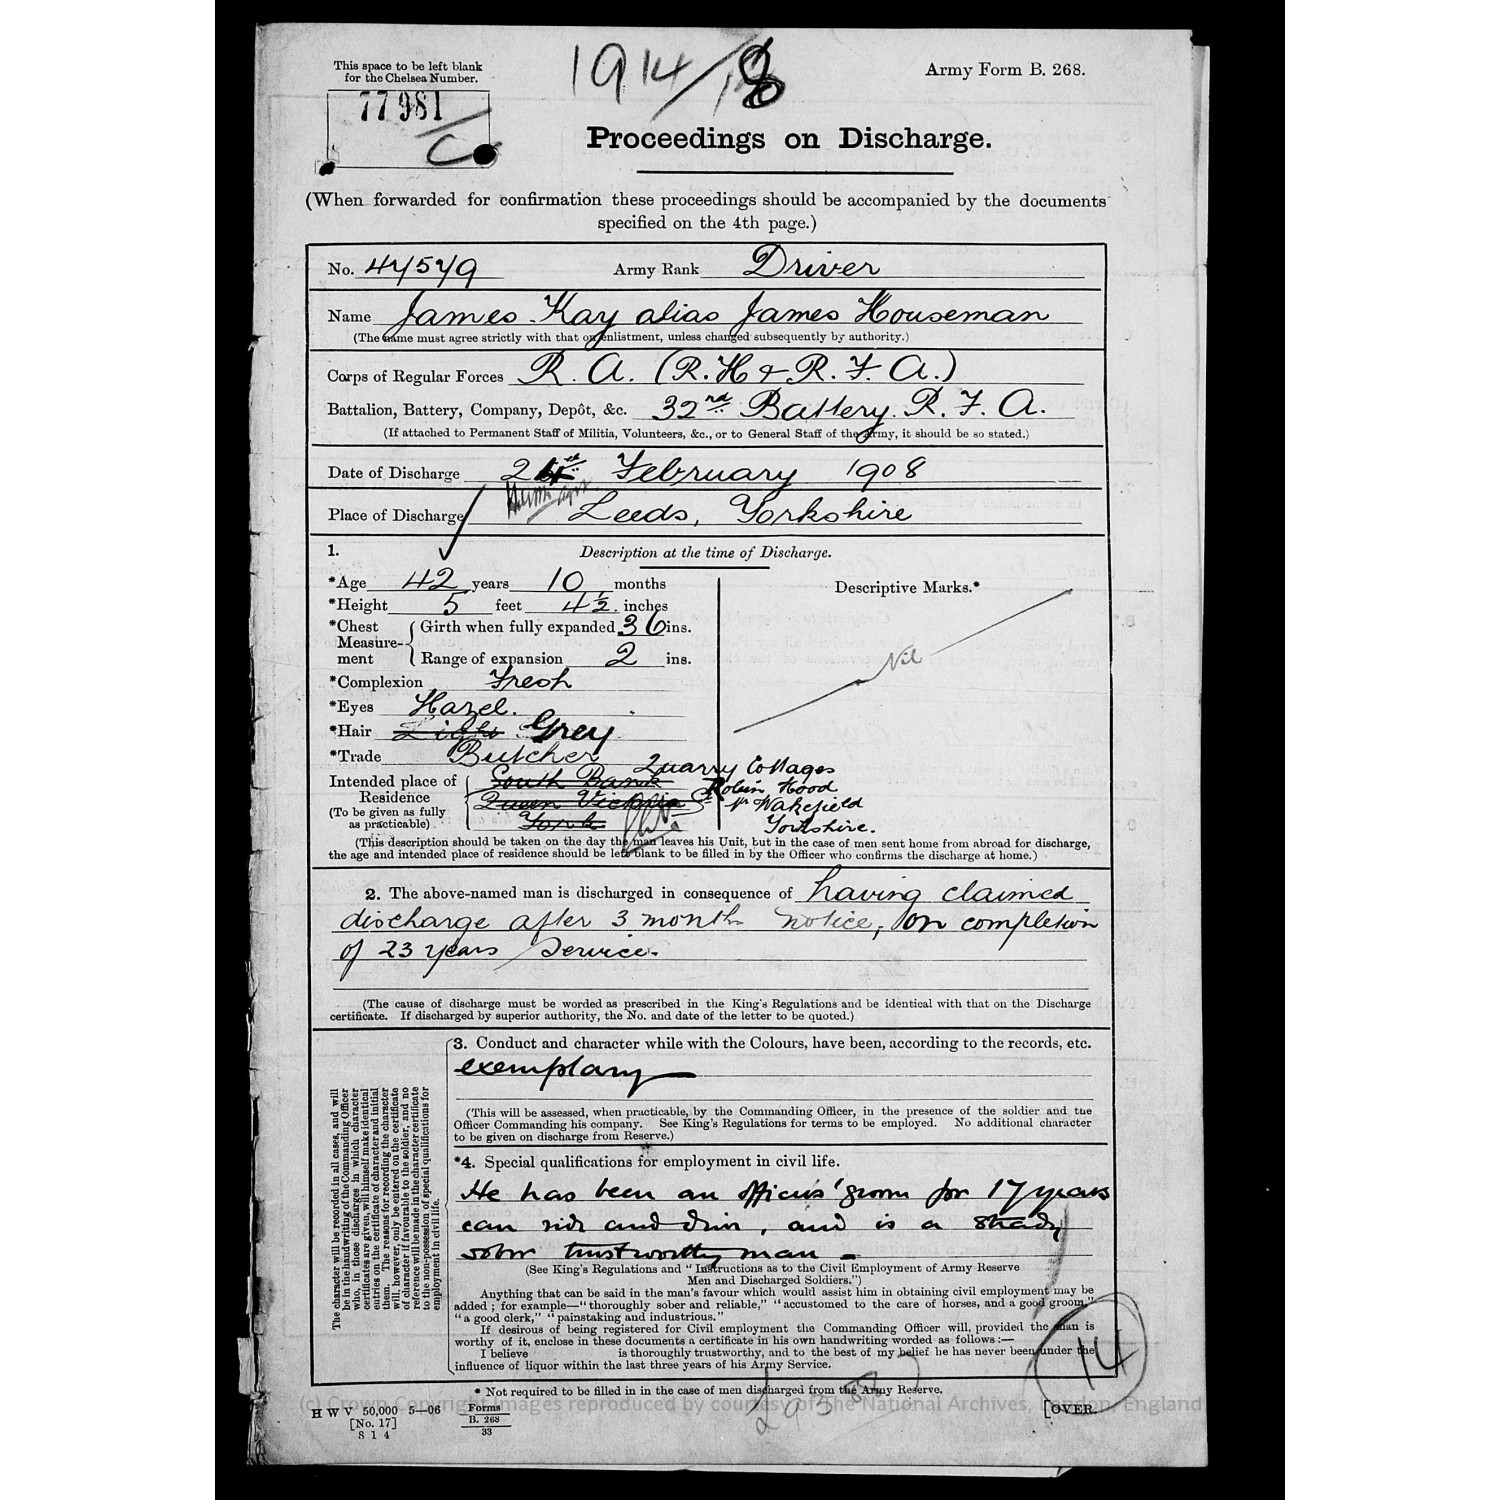 This space to be left blank
for the Chelsea Number.
77981
C
1914/
Army Form B. 268.
Proceedings on Discharge.
(When forwarded for confirmation these proceedings should be accompanied by the documents
specified on the 4th page.)
No. Army Rank Driver
Name James Kay alias James Houseman
(The name must agree strictly with that on enlistment, unless changed subsequently by authority.)
Corps of Regular Forces R. A. (R. H & R. F. A.)
Battalion, Battery, Company, Depôt, &c. 32nd Battery. R. F. A.
(If attached to Permanent Staff of Militia, Volunteers, &c., or to General Staff of the Army, it should be so stated.)
Date of Discharge 24th February 1908
Place of Discharge Leeds, Yorkshire
1. Description at the time of Discharge.
*Age 42 years 10 months
*Height 5 feet 4½ inches
*Chest Measure-ment { Girth when fully expanded 36 ins.
Range of expansion 2 ins.
*Complexion Fresh
*Eyes Hazel.
*Hair Light Grey
*Trade Butcher
Descriptive Marks.*
Nil
Intended place of Residence
(To be given as fully as practicable)
South Bank
Queen Victoria St
York
Quarry Cottages
Robin Hood
Nr Wakefield
Yorkshire.
(This description should be taken on the day the man leaves his Unit, but in the case of men sent home from abroad for discharge,
the age and intended place of residence should be left blank to be filled in by the Officer who confirms the discharge at home.)
2. The above-named man is discharged in consequence of having claimed
discharge after 3 months notice, on completion
of 23 years service.
(The cause of discharge must be worded as prescribed in the King's Regulations and be identical with that on the Discharge
certificate. If discharged by superior authority, the No. and date of the letter to be quoted.)
The character will be recorded in all cases, and will
be in the handwriting of the Commanding Officer
who, in those discharges in which character
certificates are given, will himself make identical
entries on the certificate of character and initial
them. The reasons for recording the character
will, however, only be entered on the certificate
of character if favourable to the soldier, and no
reference will be made in the character certificate
to the non-possession of special qualifications for
employment in civil life.
3. Conduct and character while with the Colours, have been, according to the records, etc.
exemplary
(This will be assessed, when practicable, by the Commanding Officer, in the presence of the soldier and the
Officer Commanding his company. See King's Regulations for terms to be employed. No additional character
to be given on discharge from Reserve.)
*4. Special qualifications for employment in civil life.
He has been an officers' groom for 17 years
can ride and drive, and is a steady
sober trustworthy man -
(See King's Regulations and "Instructions as to the Civil Employment of Army Reserve
Men and Discharged Soldiers.")
Anything that can be said in the man's favour which would assist him in obtaining civil employment may be
added; for example—"thoroughly sober and reliable," "accustomed to the care of horses, and a good groom,"
"a good clerk," "painstaking and industrious."
If desirous of being registered for Civil employment the Commanding Officer will, provided the man is
worthy of it, enclose in these documents a certificate in his own handwriting worded as follows:—
I believe is thoroughly trustworthy, and to the best of my belief he has never been under the
influence of liquor within the last three years of his Army Service.
14
* Not required to be filled in in the case of men discharged from the Army Reserve.
(c) Crown Copyright Images reproduced by courtesy of The National Archives, London, England
H W V 50,000 5—06
[No. 17]
8 1 4
Forms
B. 268
33
[OVER.